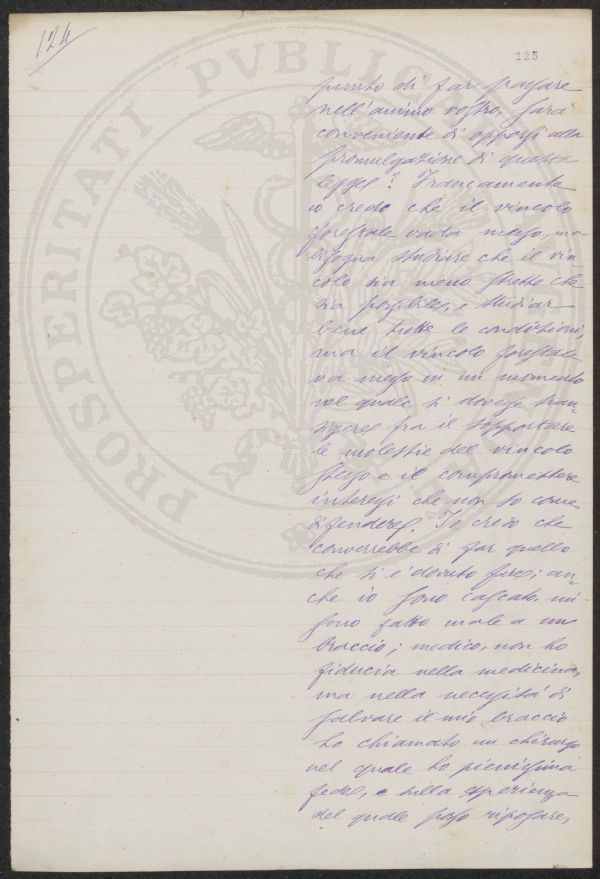 124
125
PROSPERITATI PVBLICAE
punto di far passare
nell'animo vostro, sarà
conveniente di opporsi alla
promulgazione di questa
legge? Francamente
io credo che il vincolo
forestale vada messo, ma
bisogna studiare che il vin
colo sia meno stretto che
sia possibile, e studiar
bene tutte le condizioni,
ma il vincolo forestale
va messo in un momento
nel quale si dovesse tran-
sigere fra il sopportare
le molestie del vincolo
stesso e il compromettere
interessi che non so come
difendere. Io credo che
converrebbe di far quello
che si è dovuto fare; an-
che io sono cascato, mi
sono fatto male a un
braccio; medico, non ho
fiducia nella medicina,
ma nella necessità di
salvare il mio braccio
ho chiamato un chirurgo
nel quale ho pienissima
fede, e sulla esperienza
del quale posso riposare,